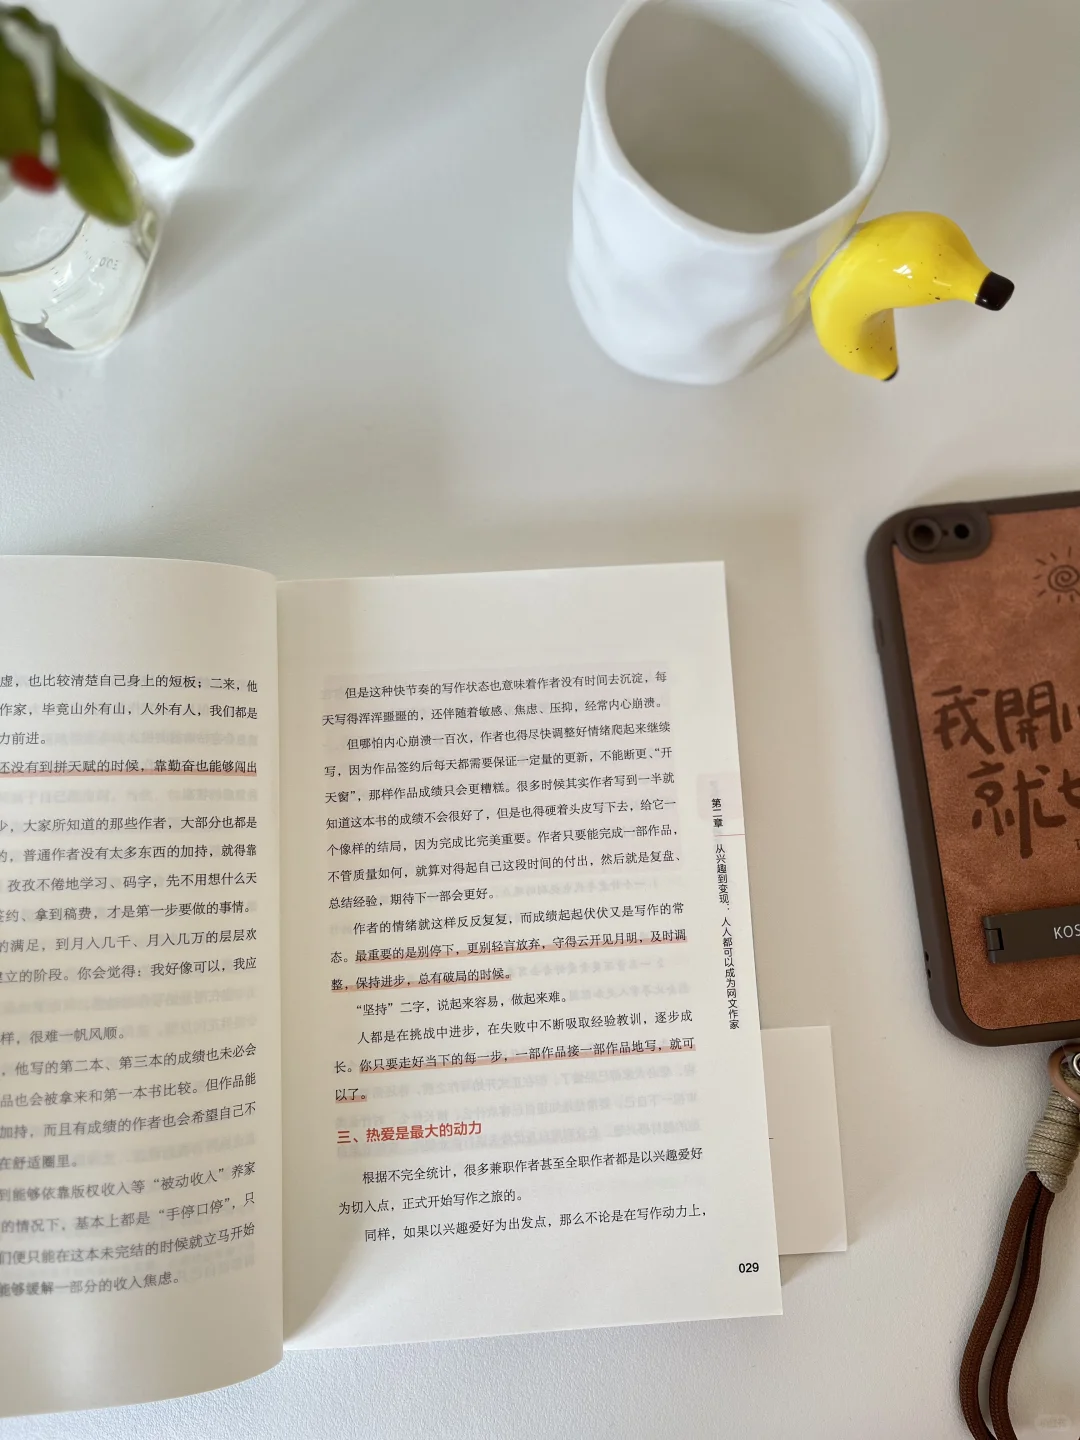 虚，也比较清楚自己身上的短板；二来，他
作家，毕竟山外有山，人外有人，我们都是
力前进。
还没有到拼天赋的时候，靠勤奋也能够闯出
少，大家所知道的那些作者，大部分也都是
的，普通作者没有太多东西的加持，就得靠
孜孜不倦地学习、码字，先不用想什么天
签约、拿到稿费，才是第一步要做的事情。
的满足，到月入几千、月入几万的层层欢
建立的阶段。你会觉得：我好像可以，我应
样，很难一帆风顺。
，他写的第二本、第三本的成绩也未必会
品也会被拿来和第一本书比较。但作品能
加持，而且有成绩的作者也会希望自己不
在舒适圈里。
到能够依靠版权收入等“被动收入”养家
的情况下，基本上都是“手停口停”，只
们便只能在这本未完结的时候就立马开始
能够缓解一部分的收入焦虑。
但是这种快节奏的写作状态也意味着作者没有时间去沉淀，每
天写得浑浑噩噩的，还伴随着敏感、焦虑、压抑，经常内心崩溃。
但哪怕内心崩溃一百次，作者也得尽快调整好情绪爬起来继续
写，因为作品签约后每天都需要保证一定量的更新，不能断更、“开
天窗”，那样作品成绩只会更糟糕。很多时候其实作者写到一半就
知道这本书的成绩不会很好了，但是也得硬着头皮写下去，给它一
个像样的结局，因为完成比完美重要。作者只要能完成一部作品，
不管质量如何，就算对得起自己这段时间的付出，然后就是复盘、
总结经验，期待下一部会更好。
作者的情绪就这样反反复复，而成绩起起伏伏又是写作的常
态。最重要的是别停下，更别轻言放弃，守得云开见月明，及时调
整，保持进步，总有破局的时候。
“坚持”二字，说起来容易，做起来难。
人都是在挑战中进步，在失败中不断吸取经验教训，逐步成
长。你只要走好当下的每一步，一部作品接一部作品地写，就可
以了。
三、热爱是最大的动力
根据不完全统计，很多兼职作者甚至全职作者都是以兴趣爱好
为切入点，正式开始写作之旅的。
同样，如果以兴趣爱好为出发点，那么不论是在写作动力上，
第二章 从兴趣到变现：人人都可以成为网文作家
029
我開
就
KOS